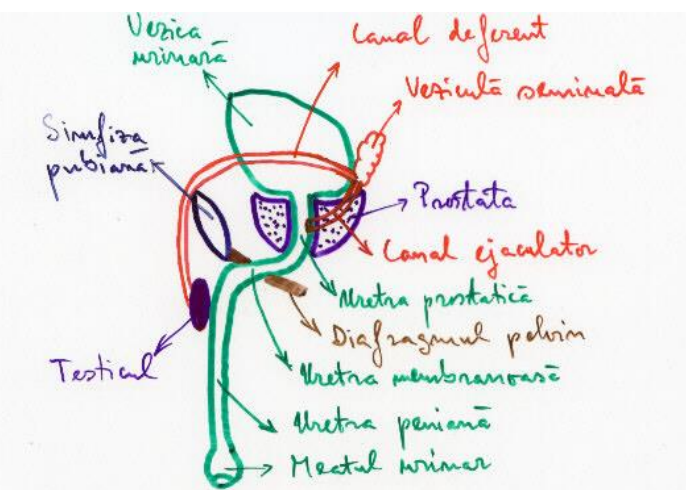 Vezica
urinară
Canal deferent
Veziculă seminală
Simfiza
pubiană
Prostata
Canal ejaculator
Uretra prostatică
Diafragmul pelvin
Testicul
Uretra membranoasă
Uretra peniană
Meatul urinar